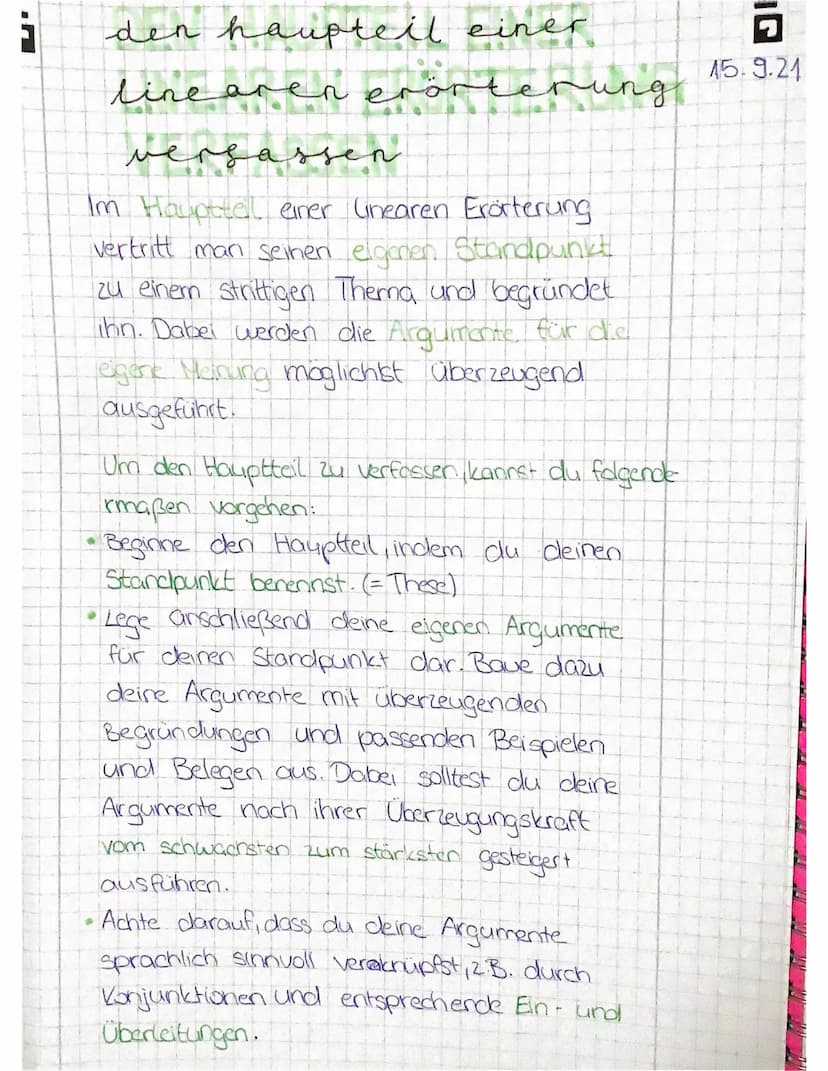 den haupteil einer
linearen erörterung
verfassen
15.9.21
Im Hauptteil einer linearen Erörterung
vertritt man seinen eigenen Standpunkt
zu einem strittigen Thema und begründet
ihn. Dabei werden die Argumente für die
eigene Meinung möglichst überzeugend
ausgeführt.
Um den Hauptteil zu verfassen, kannst du folgende
rmaßen vorgehen:
• Beginne den Hauptteil, indem du deinen
Standpunkt benennst. (= These)
• Lege anschließend deine eigenen Argumente
für deinen Standpunkt dar. Baue dazu
deine Argumente mit überzeugenden
Begründungen und passenden Beispielen
und Belegen aus. Dabei solltest du deine
Argumente nach ihrer Überzeugungskraft
vom schwächsten zum stärksten gesteigert
ausführen.
• Achte darauf, dass du deine Argumente
sprachlich sinnvoll verknüpfst, z.B. durch
Konjunktionen und entsprechende Ein- und
Überleitungen.